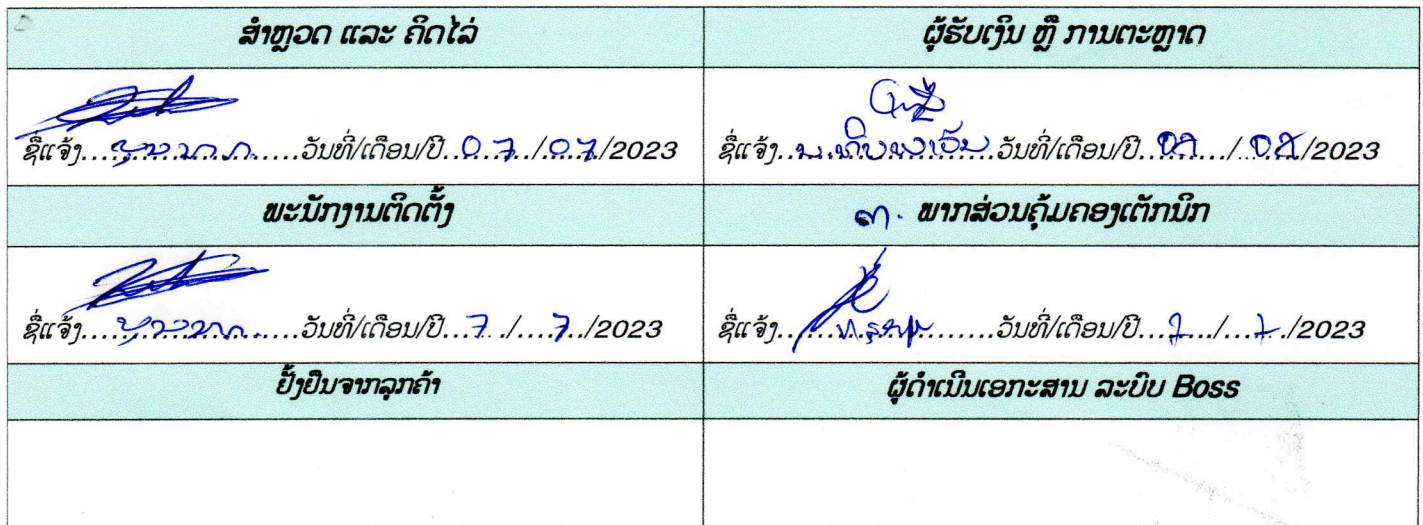 ສຳຫຼວດ ແລະ ຄິດໄລ່
ຜູ້ຮັບເງິນ ຫຼື ການຕະຫຼາດ
ຊື່ແຈ້ງ..................ວັນທີ່/ເດືອນ/ປີ..07../.07./2023
ຊື່ແຈ້ງ..................ວັນທີ່/ເດືອນ/ປີ........./......./2023
ພະນັກງານຕິດຕັ້ງ
ຕ. ພາກສ່ວນຄຸ້ມຄອງເຕັກນິກ
ຊື່ແຈ້ງ..................ວັນທີ່/ເດືອນ/ປີ...7../....7../2023
ຊື່ແຈ້ງ..................ວັນທີ່/ເດືອນ/ປີ...7.../...7../2023
ຢັ້ງຢືນຈາກລູກຄ້າ
ຜູ້ດຳເນີນເອກະສານ ລະບົບ Boss